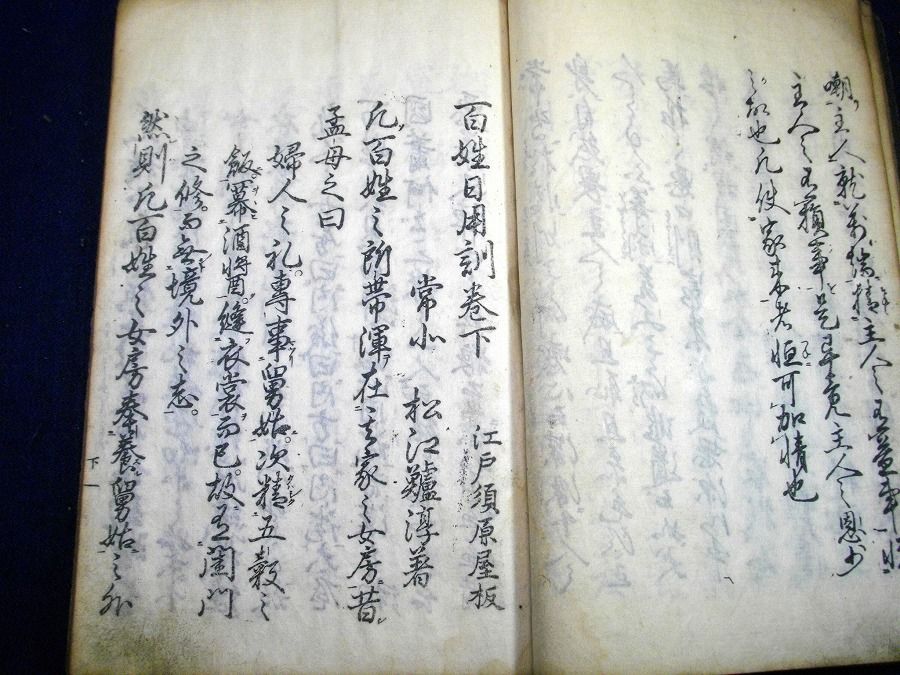 嘲主人就万端精主人之有益事
主人之有賴事是畢竟主人之恩少
之故也凡使家来者恒可加情也
百姓日用訓巻下
江戸須原屋板
常州 松江鱸淳著
凡百姓之所帯渾在其家之女房昔
孟母之曰
婦人之礼専事舅姑次精五穀之
飯羃酒醬縫衣裳而已故有閨門
之修而無境外之志
然則凡百姓之女房奉養舅姑之外
下一